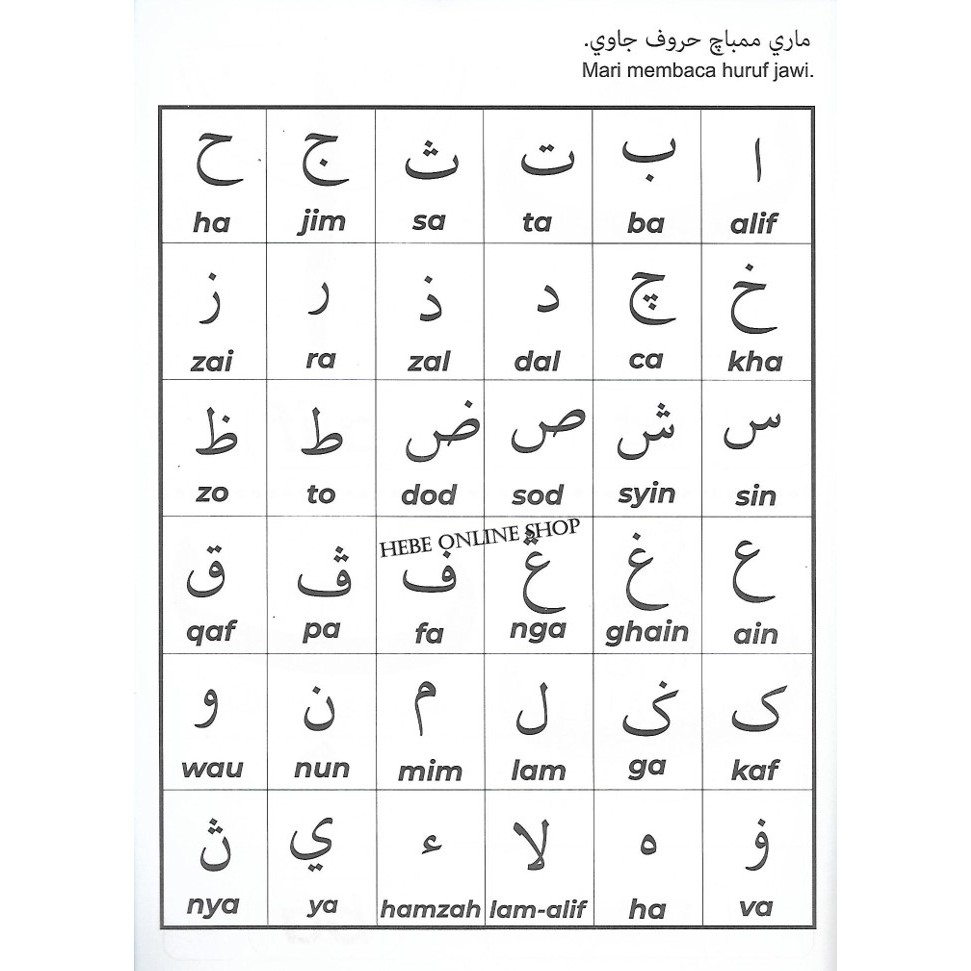 ماري ممباچ حروف جاوي.
Mari membaca huruf jawi.
ا ب ت ث ج ح
alif ba ta sa jim ha
خ چ د ذ ر ز
kha ca dal zal ra zai
س ش ص ض ط ظ
sin syin sod dod to zo
HEBE ONLINE SHOP
ع غ ڠ ف ڤ ق
ain ghain nga fa pa qaf
ک ݢ ل م ن و
kaf ga lam mim nun wau
ۏ ه لا ء ي ڽ
va ha lam-alif hamzah ya nya